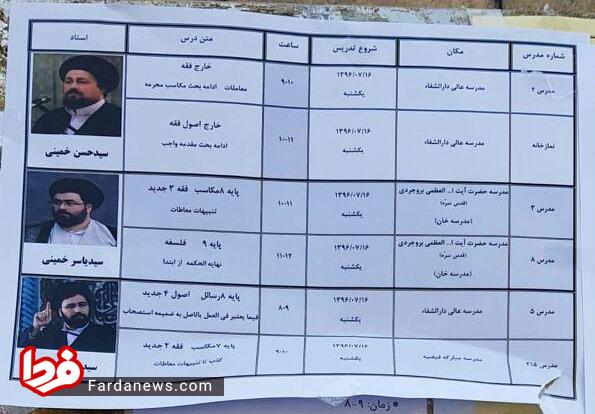 شماره مدرس	مکان	شروع تدریس	ساعت	متن درس	استاد
مدرس ۲	مدرسه عالی دارالشفاء	۱۳۹۶/۰۷/۱۶	۹-۱۰	خارج فقه
یکشنبه	معاملات ادامه بحث مکاسب محرمه
نمازخانه	مدرسه عالی دارالشفاء	۱۳۹۶/۰۷/۱۶	۱۰-۱۱	خارج اصول فقه
یکشنبه	ادامه بحث مقدمه واجب
سیدحسن خمینی
مدرس ۳	مدرسه حضرت آیت ا... العظمی بروجردی	۱۳۹۶/۰۷/۱۶	۱۰-۱۱	پایه ۸ مکاسب فقه ۳ جدید
(قدس سره)	یکشنبه	تنبیهات معاطات
(مدرسه خان)
مدرس ۸	مدرسه حضرت آیت ا... العظمی بروجردی	۱۳۹۶/۰۷/۱۶	۱۱-۱۲	پایه ۹ فلسفه
(قدس سره)	یکشنبه	نهایه الحکمه از ابتدا
(مدرسه خان)
سیدیاسر خمینی
مدرس ۵	مدرسه عالی دارالشفاء	۱۳۹۶/۰۷/۱۶	۸-۹	پایه ۸ رسائل اصول ۴ جدید
یکشنبه	فیما یعتبر فی العمل بالاصل به ضمیمه استصحاب
مدرس ۲۱۵	مدرسه مبارکه فیضیه	۱۳۹۶/۰۷/۱۶	۹-۱۰	پایه ۷ مکاسب فقه ۲ جدید
یکشنبه	کذب تا تنبیهات معاطات
فردا
Fardanews.com
* زمان: ۹-۸